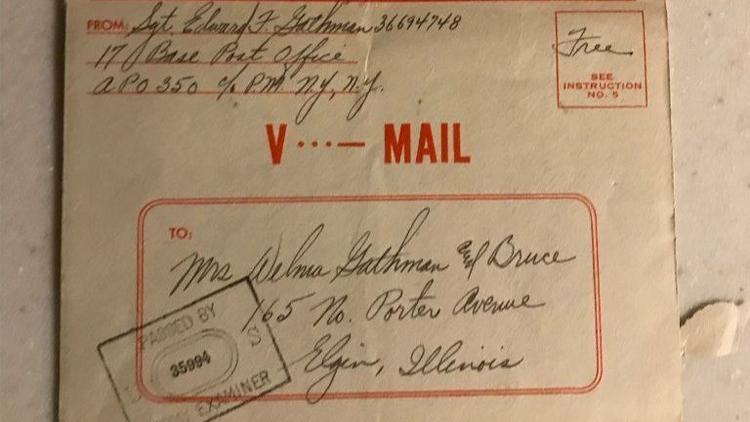 FROM: Sgt. Edward F. Gathman 36694748
17 Base Post Office
APO 350 c/o P.M. N.Y., N.Y.
Free
SEE
INSTRUCTION
NO. 5
V ···— MAIL
TO:
Mrs Welma Gathman and Bruce
165 No. Porter Avenue
Elgin, Illinois
PASSED BY
35994
EXAMINER